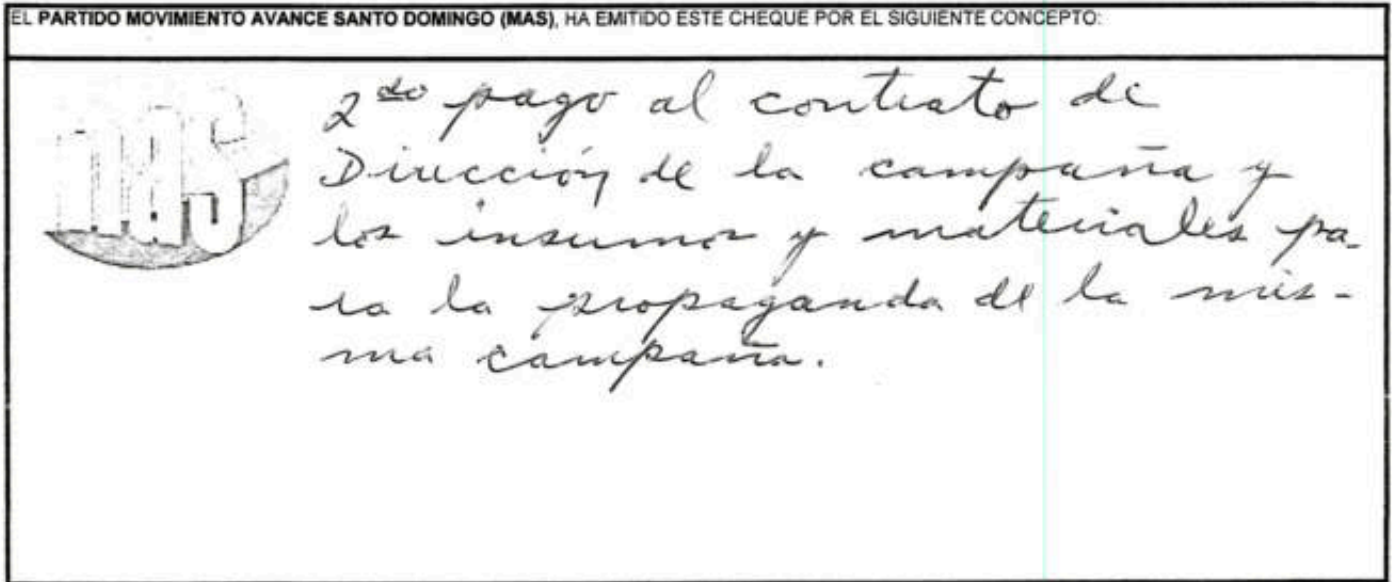 EL PARTIDO MOVIMIENTO AVANCE SANTO DOMINGO (MAS), HA EMITIDO ESTE CHEQUE POR EL SIGUIENTE CONCEPTO:
mas
2do pago al contrato de
Dirección de la campaña y
los insumos y materiales pa-
ra la propaganda de la mis-
ma campaña.